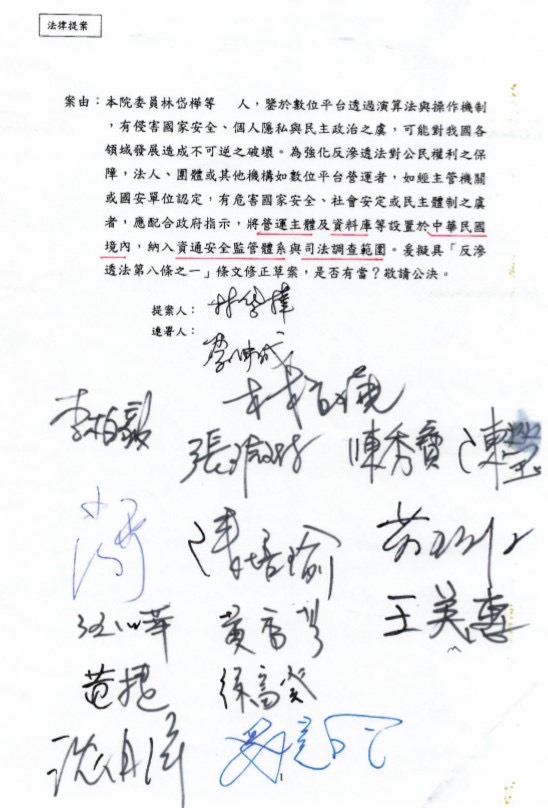 法律提案
案由：本院委員林岱樺等　人，鑒於數位平台透過演算法與操作機制
，有侵害國家安全、個人隱私與民主政治之虞，可能對我國各
領域發展造成不可逆之破壞。為強化反滲透法對公民權利之保
障，法人、團體或其他機構如數位平台營運者，如經主管機關
或國安單位認定，有危害國家安全、社會安定或民主體制之虞
者，應配合政府指示，將營運主體及資料庫等設置於中華民國
境內，納入資通安全監管體系與司法調查範圍。爰擬具「反滲
透法第八條之一」條文修正草案，是否有當？敬請公決。
提案人：林岱樺
連署人：
李坤城
李柏毅
陳秀寶
陳培瑜
王美惠
黃捷 徐富癸